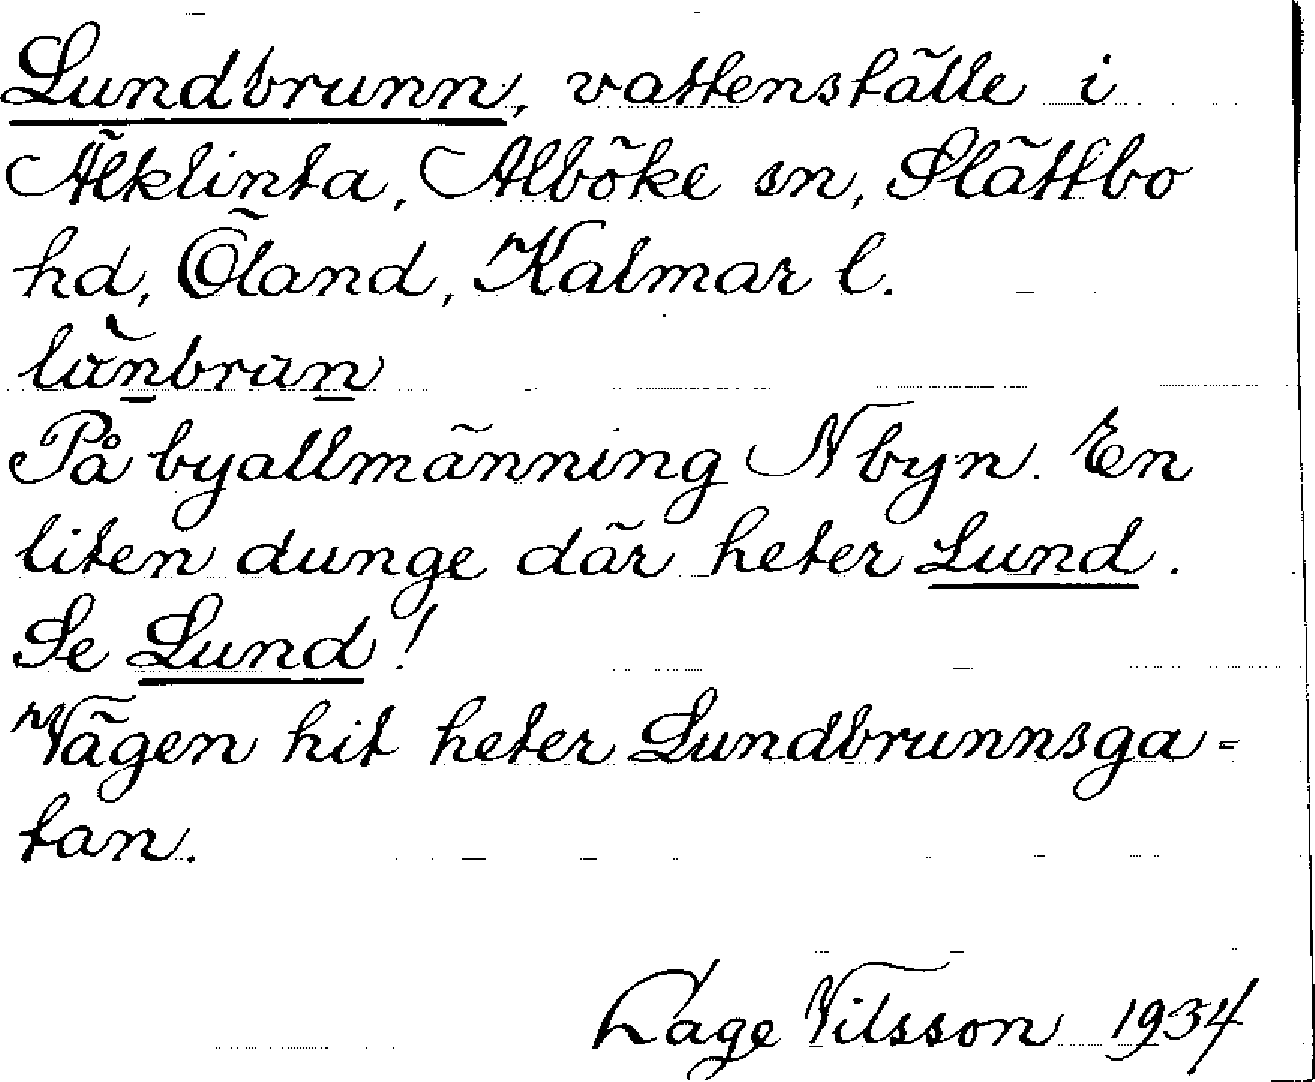 Lundbrunn, vattenställe i
Älklinta, Alböke sn, Slättbo
hd, Öland, Kalmar l.
lun̲brun̲
På byallmänning N byn. En
liten dunge där heter Lund.
Se Lund!
Vägen hit heter Lundbrunnsga-
tan.
Lage Nilsson 1934